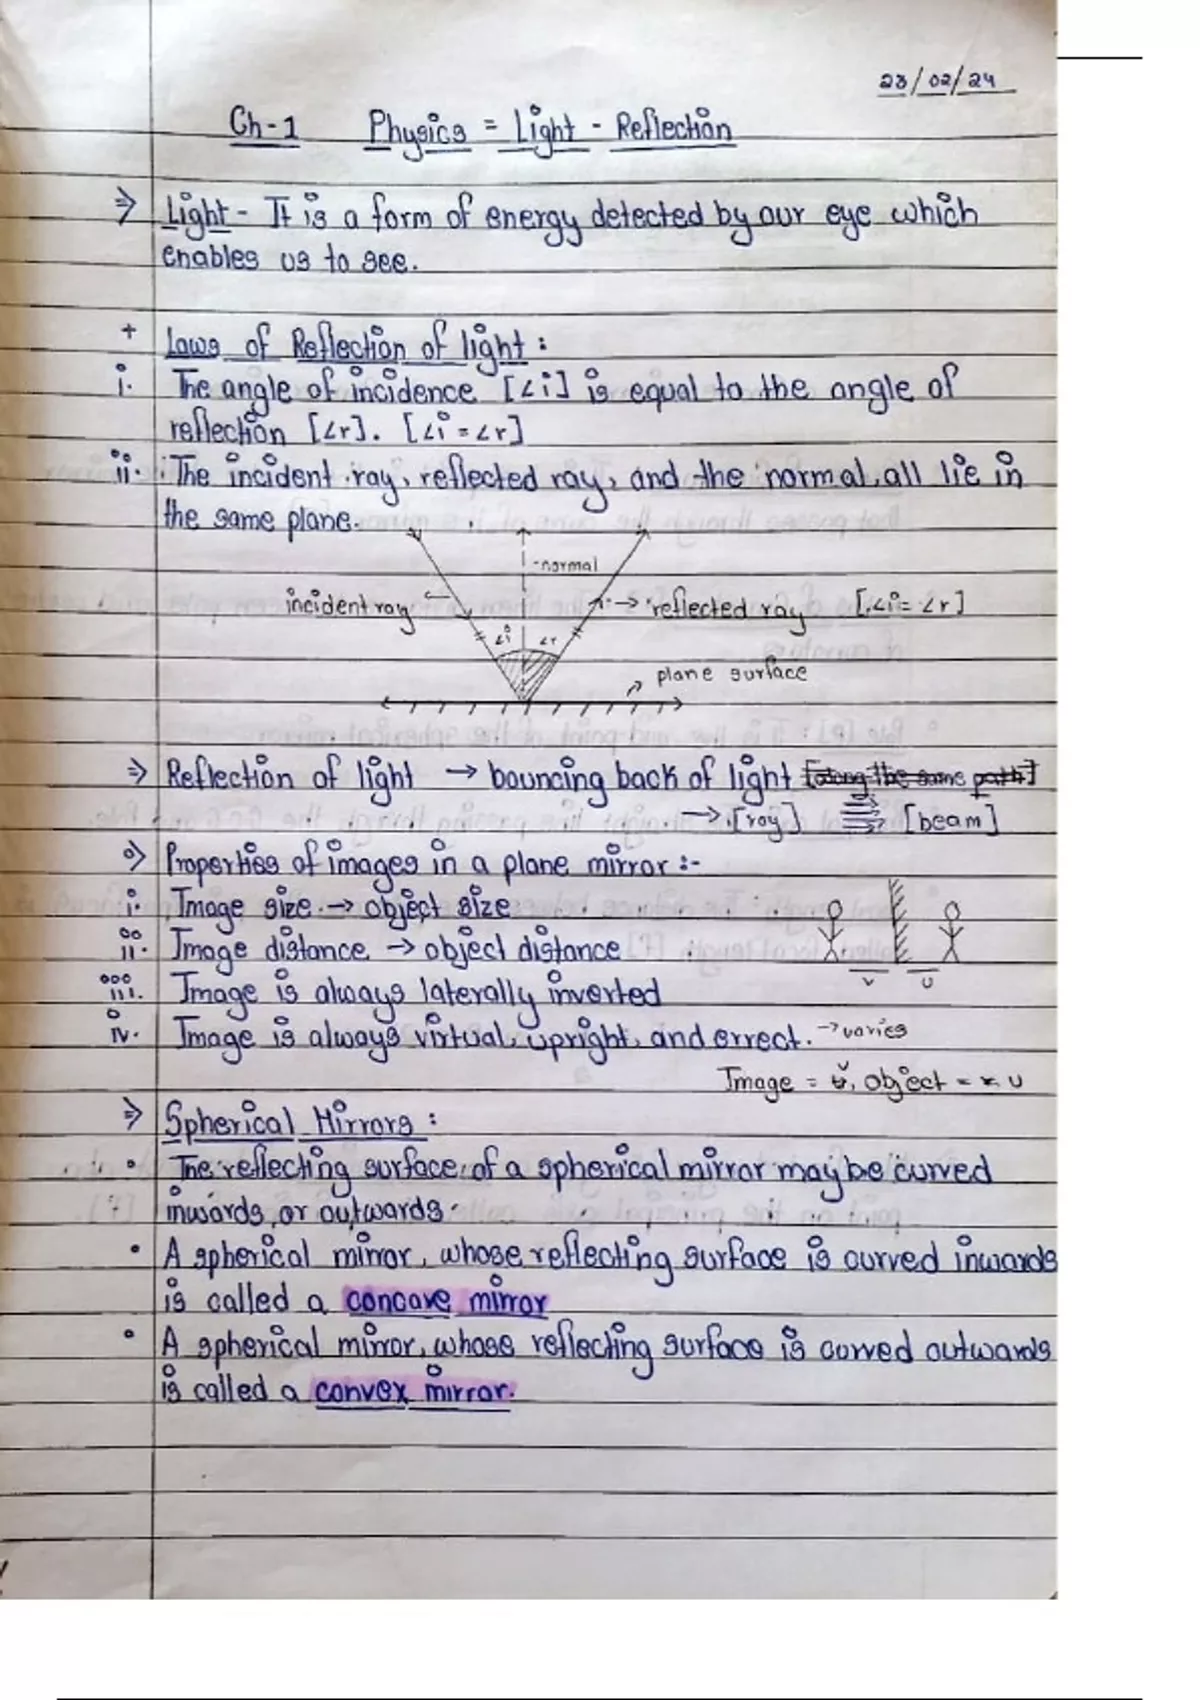 23/02/24
Ch-1 Physics = Light - Reflection
⇒ Light - It is a form of energy detected by our eye which
enables us to see.
+ Laws of Reflection of light :
i. The angle of incidence [∠i] is equal to the angle of
reflection [∠r]. [∠i = ∠r]
ii. The incident ray, reflected ray, and the normal, all lie in
the same plane.
normal
incident ray
reflected ray [∠i = ∠r]
∠i ∠r
plane surface
⇒ Reflection of light → bouncing back of light [along the same path]
→ [ray] [beam]
Properties of images in a plane mirror :-
i. Image size → object size
ii. Image distance → object distance
v u
iii. Image is always laterally inverted
iv. Image is always virtual, upright, and errect. → varies
Image = v, object = u
⇒ Spherical Mirrors :
• The reflecting surface of a spherical mirror may be curved
inwards or outwards.
• A spherical mirror, whose reflecting surface is curved inwards
is called a concave mirror
• A spherical mirror, whose reflecting surface is curved outwards
is called a convex mirror.